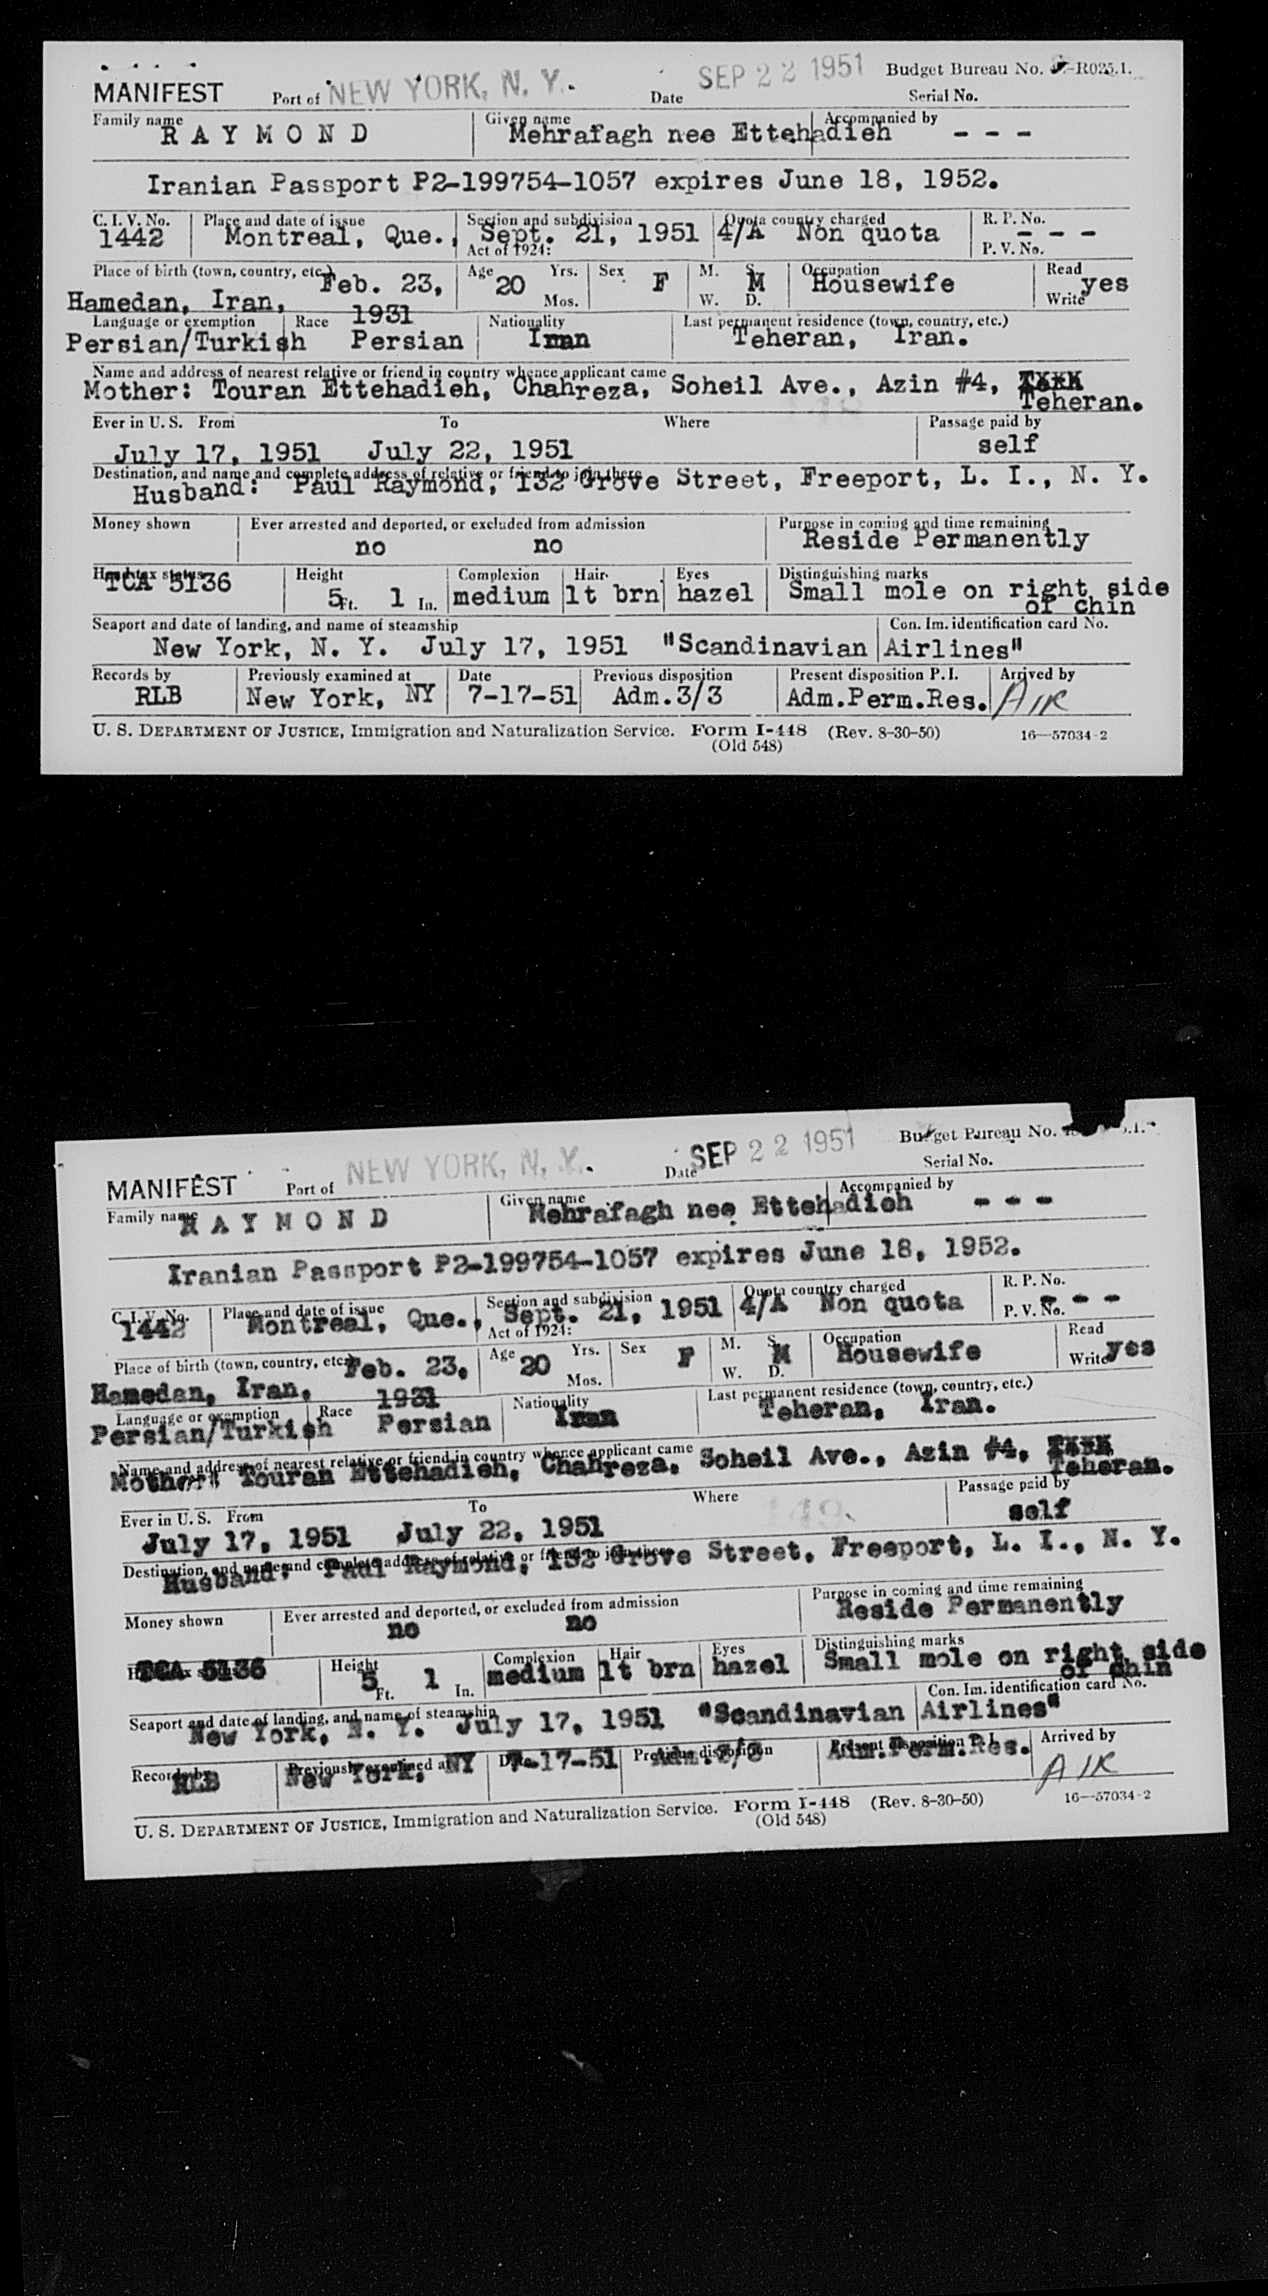 MANIFEST Port of NEW YORK, N. Y. Date SEP 22 1951 Budget Bureau No. -R025.1.
Serial No.
Family name RAYMOND Given name Mehrafagh nee Ettehadieh Accompanied by - - -
Iranian Passport P2-199754-1057 expires June 18, 1952.
C. I. V. No. Place and date of issue Section and subdivision Quota country charged R. P. No.
1442 Montreal, Que., Sept. 21, 1951 4/A Non quota - - -
Act of 1924: P. V. No.
Place of birth (town, country, etc.) Feb. 23, Age 20 Yrs. Sex F M. S. M Occupation Housewife Read yes
Hamedan, Iran, 1931 Mos. W. D. Write
Language or exemption Race Nationality Last permanent residence (town, country, etc.)
Persian/Turkish Persian Iran Teheran, Iran.
Name and address of nearest relative or friend in country whence applicant came
Mother: Touran Ettehadieh, Chahreza, Soheil Ave., Azin #4,
Teheran.
Ever in U. S. From To Where Passage paid by
July 17, 1951 July 22, 1951 self
Destination, and name and complete address of relative or friend to join there
Husband: Paul Raymond, 132 Grove Street, Freeport, L. I., N. Y.
Money shown Ever arrested and deported, or excluded from admission Purpose in coming and time remaining
no no Reside Permanently
Head tax status Height Complexion Hair Eyes Distinguishing marks
TCA 5136 5 Ft. 1 In. medium lt brn hazel Small mole on right side
of chin
Seaport and date of landing, and name of steamship Con. Im. identification card No.
New York, N. Y. July 17, 1951 "Scandinavian Airlines"
Records by Previously examined at Date Previous disposition Present disposition P. I. Arrived by
RLB New York, NY 7-17-51 Adm.3/3 Adm.Perm.Res. AIR
U. S. DEPARTMENT OF JUSTICE, Immigration and Naturalization Service. Form I-448 (Rev. 8-30-50) 16—57034-2
(Old 548)
MANIFEST Port of NEW YORK, N. Y. Date SEP 22 1951 Budget Bureau No.
Serial No.
Family name RAYMOND Given name Mehrafagh nee Ettehadieh Accompanied by - - -
Iranian Passport P2-199754-1057 expires June 18, 1952.
C. I. V. No. Place and date of issue Section and subdivision Quota country charged R. P. No.
1442 Montreal, Que., Sept. 21, 1951 4/A Non quota - - -
Act of 1924: P. V. No.
Place of birth (town, country, etc.) Feb. 23, Age 20 Yrs. Sex F M. S. M Occupation Housewife Read yes
Hamedan, Iran, 1931 Mos. W. D. Write
Language or exemption Race Nationality Last permanent residence (town, country, etc.)
Persian/Turkish Persian Iran Teheran, Iran.
Name and address of nearest relative or friend in country whence applicant came
Mother: Touran Ettehadieh, Chahreza, Soheil Ave., Azin #4,
Teheran.
Ever in U. S. From To Where 149. Passage paid by
July 17, 1951 July 22, 1951 self
Destination, and name and complete address of relative or friend to join there
Husband: Paul Raymond, 132 Grove Street, Freeport, L. I., N. Y.
Money shown Ever arrested and deported, or excluded from admission Purpose in coming and time remaining
no no Reside Permanently
Height Complexion Hair Eyes Distinguishing marks
TCA 5136 5 Ft. 1 In. medium lt brn hazel Small mole on right side
of chin
Seaport and date of landing, and name of steamship Con. Im. identification card No.
New York, N. Y. July 17, 1951 "Scandinavian Airlines"
Records by Previously examined at Date Previous disposition Present disposition P. I. Arrived by
RLB New York, NY 7-17-51 Adm.3/3 Adm.Perm.Res. AIR
U. S. DEPARTMENT OF JUSTICE, Immigration and Naturalization Service. Form I-448 (Rev. 8-30-50) 16—57034-2
(Old 548)